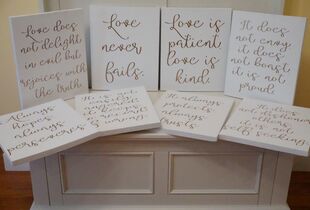 Love does
not delight
in evil but
rejoices with
the truth.
Love
never
fails.
Love is
patient
love is
kind.
It does
not envy
it does
not boast
it is not
proud
Always
hopes
always
perseveres
It always
protects
always
trusts.
It does
not dishonor
others
it is not
self seeking.